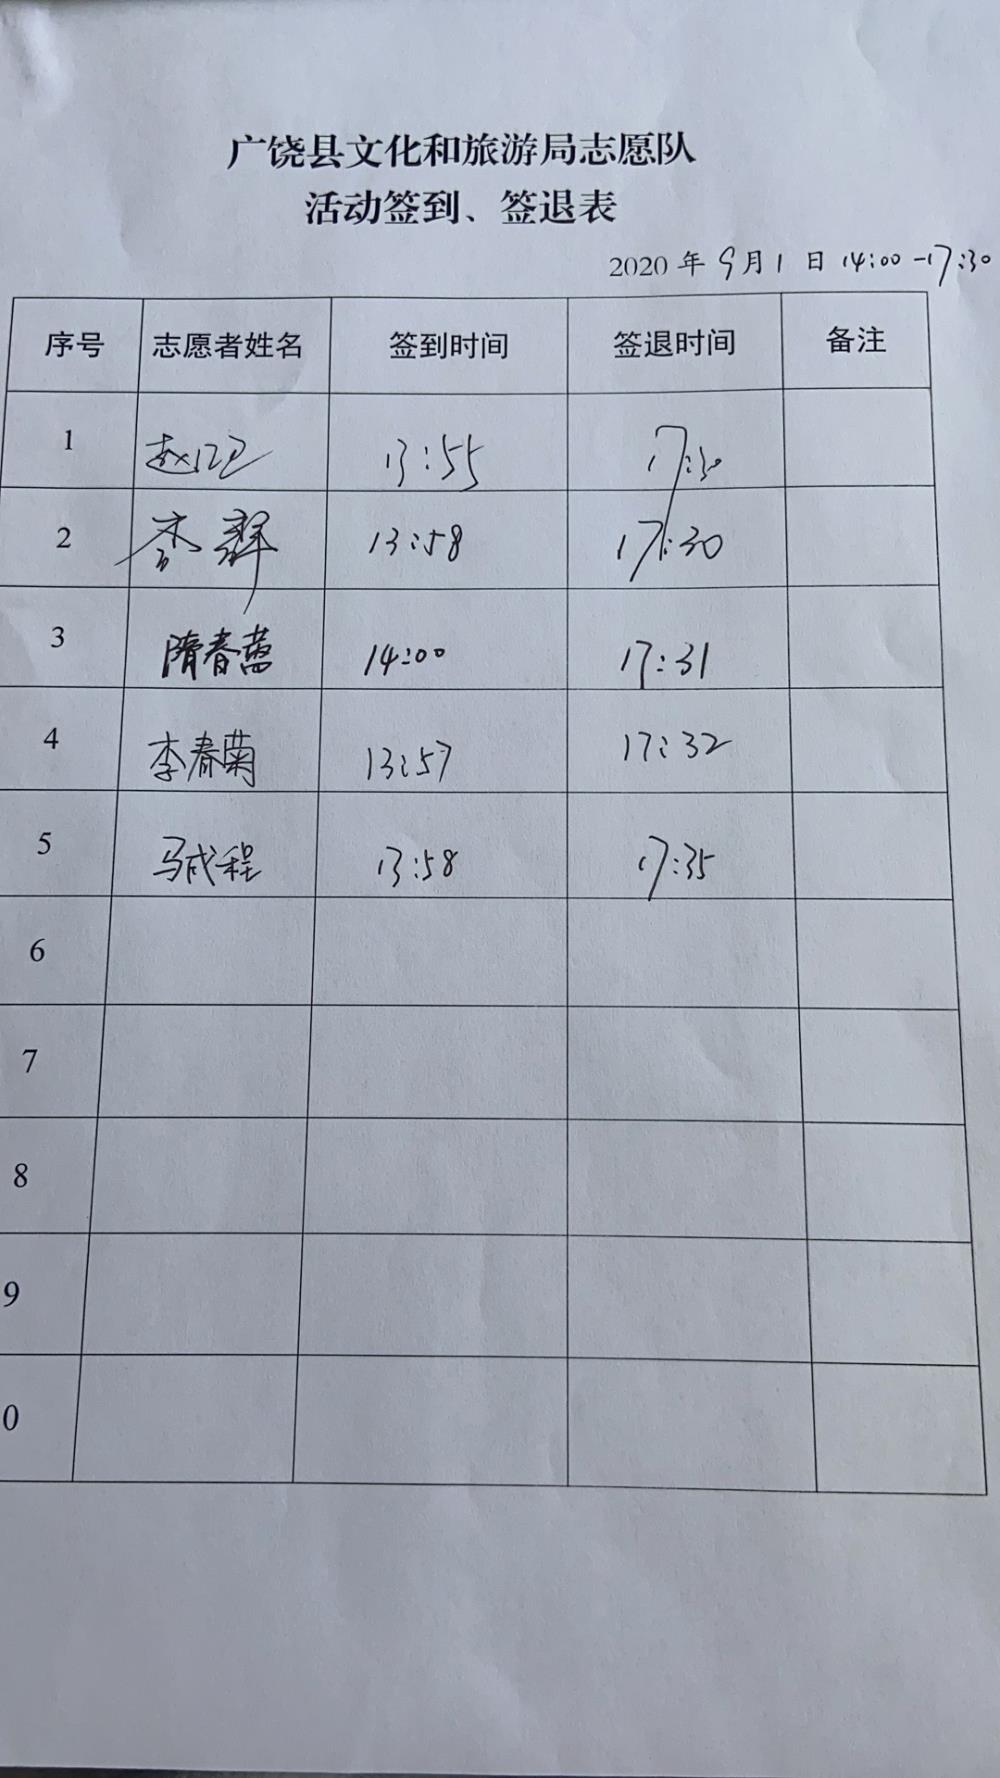 广饶县文化和旅游局志愿队
活动签到、签退表
2020 年 9月1日 14:00-17:30
序号 志愿者姓名 签到时间 签退时间 备注
1 13:55 17:30
2 13:58 17:30
3 隋春 14:00 17:31
4 李春菊 13:57 17:32
5 马成程 13:58 17:35
6
7
8
9
0